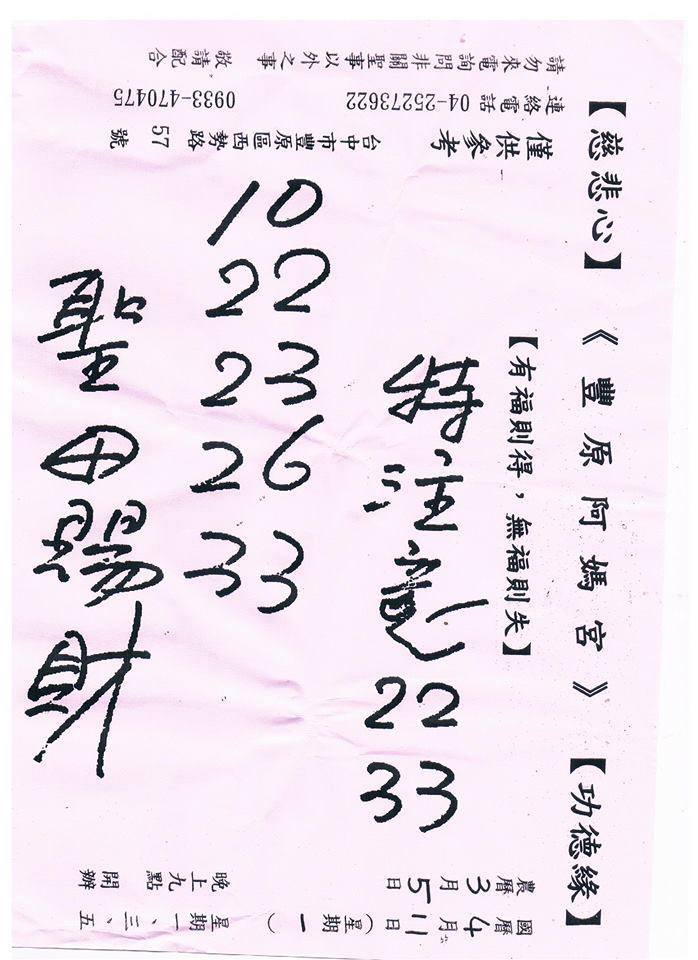 【慈悲心】 《豐原阿媽宮》 【功德緣】
【有福則得，無福則失】
僅供參考
台中市豐原區西勢路 57 號
連絡電話 04-25273622 0933-470475
請勿來電詢問非關聖事以外之事 敬請配合
特注意
22
33
10
22
23
26
33
聖母賜財
國曆 4月 11日（星期一）
農曆 3月 5日
星期一、三、五
晚上九點開辦